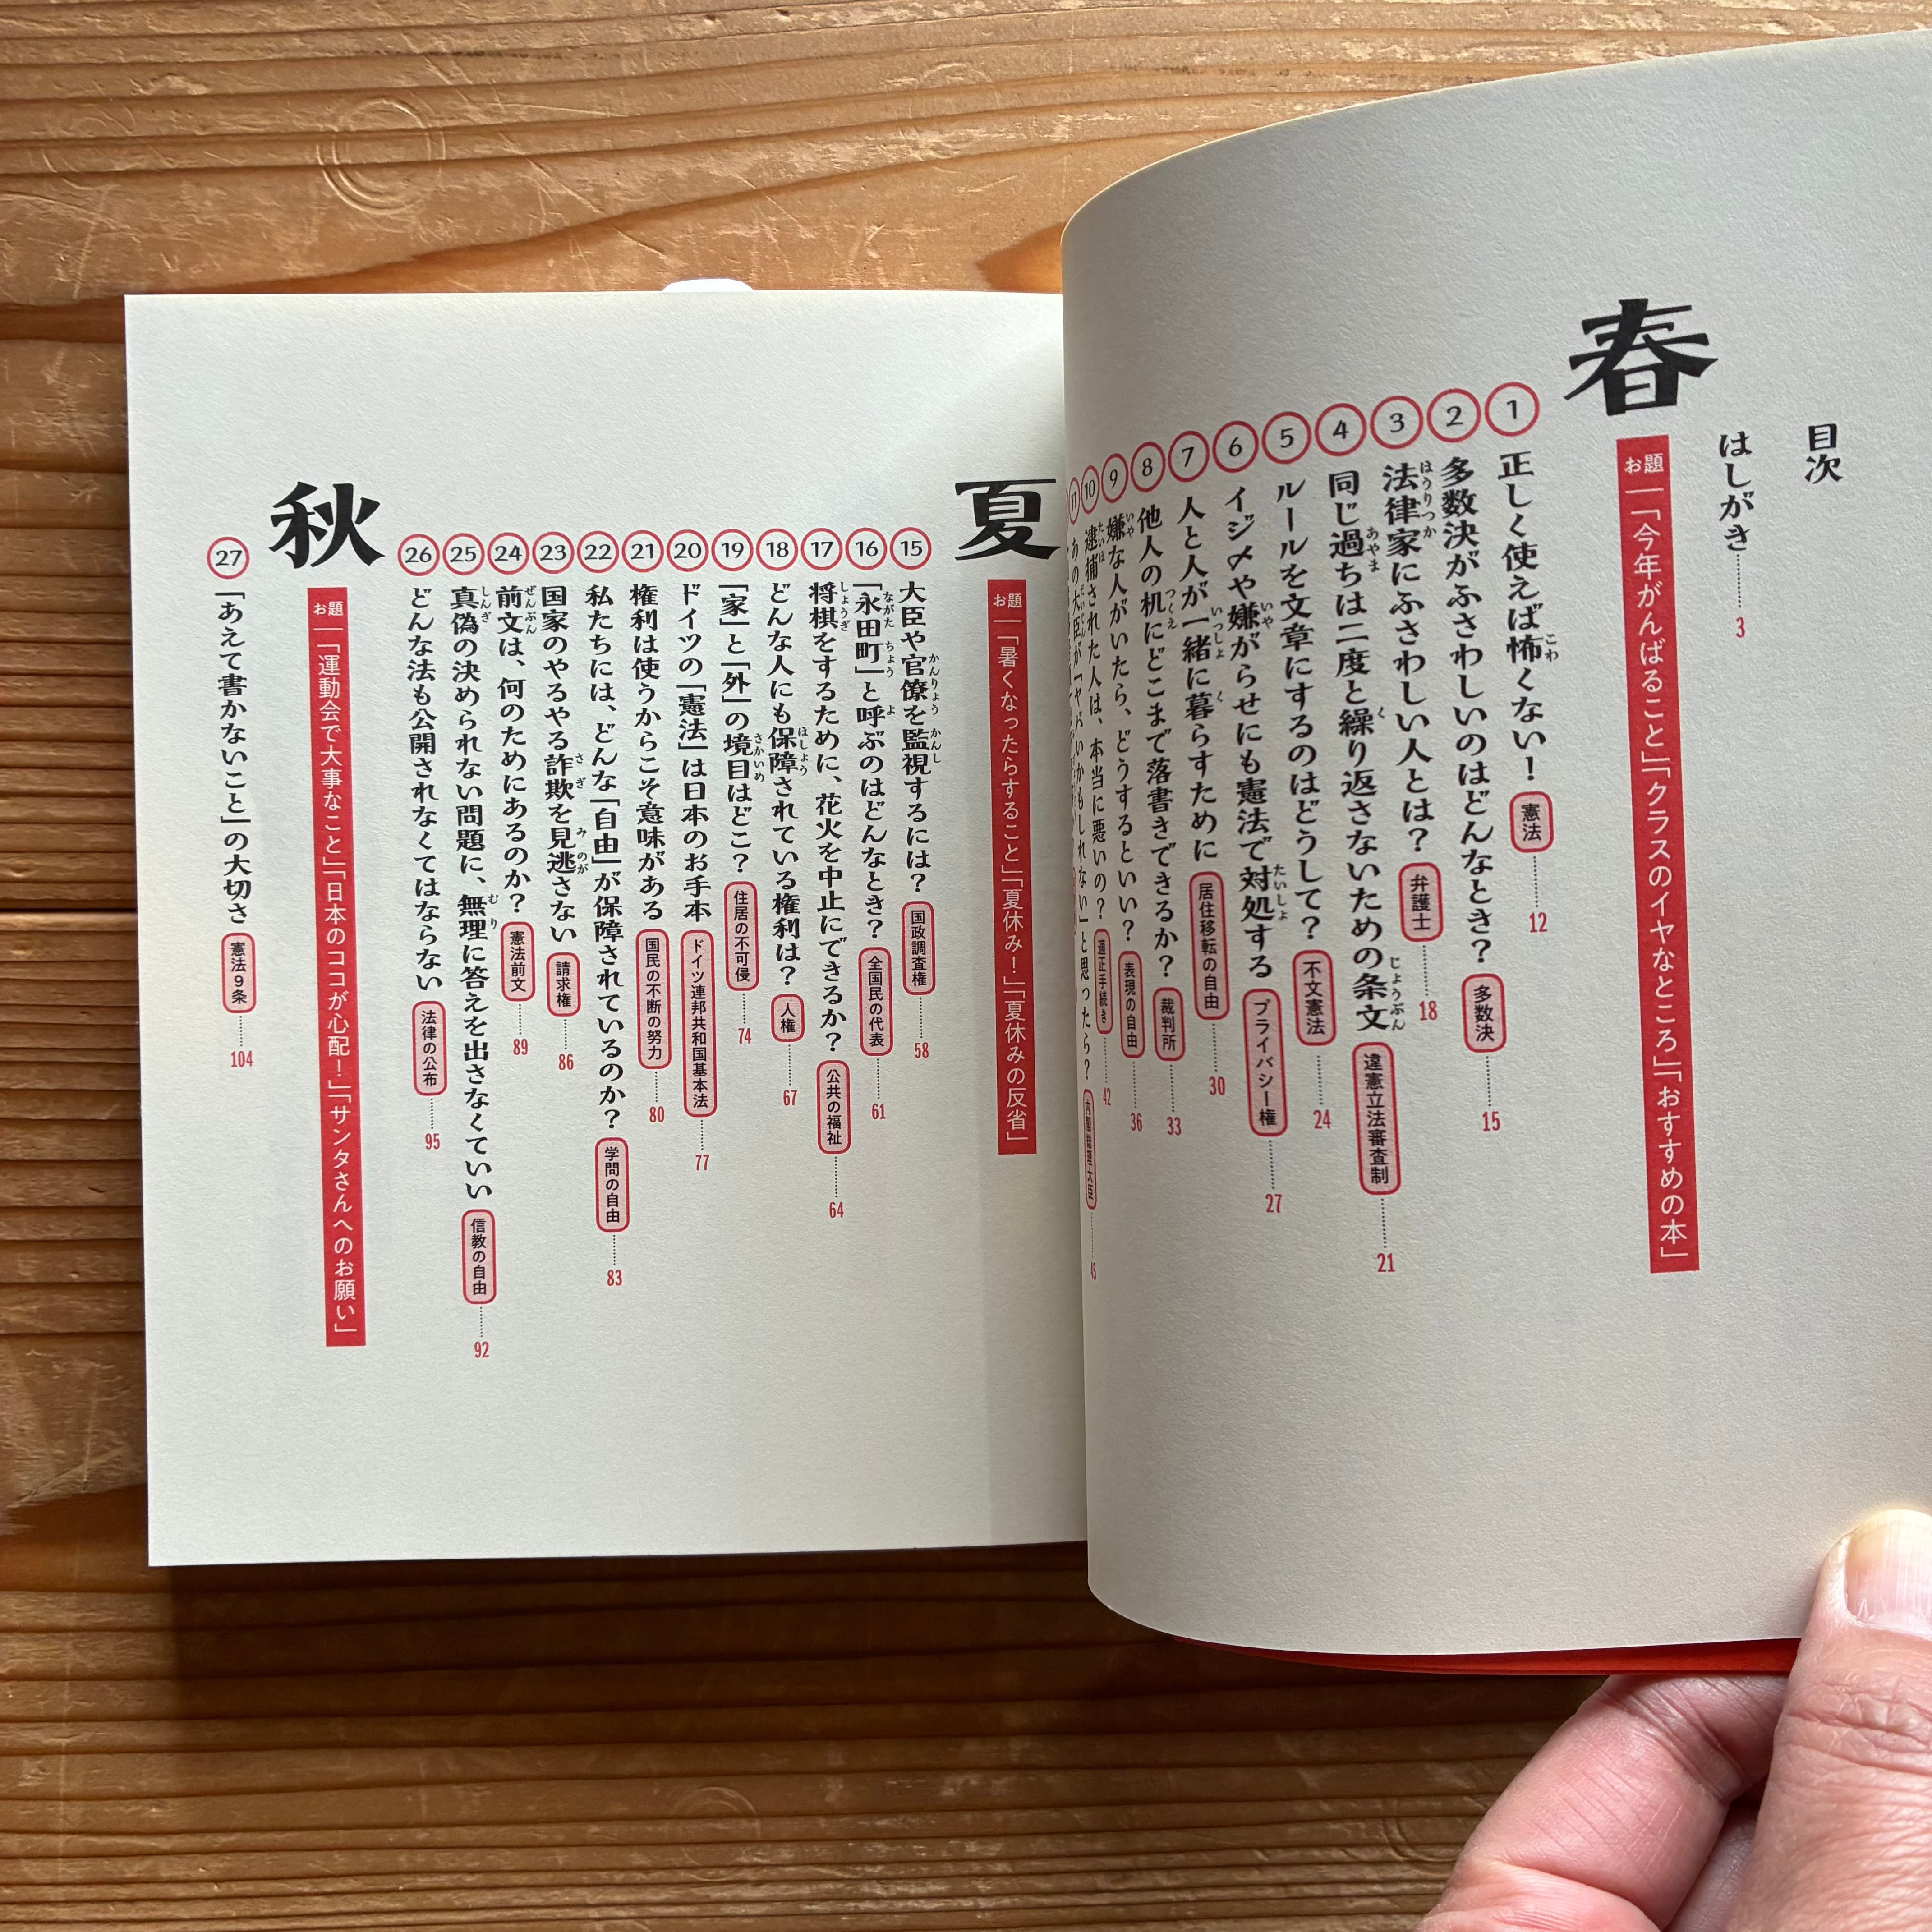 目次
はしがき 3
春
お題 「今年がんばること」「クラスのイヤなところ」「おすすめの本」
1 正しく使えば怖くない！ 憲法 12
2 多数決がふさわしいのはどんなとき？ 多数決 15
3 法律家にふさわしい人とは？ 弁護士 18
4 同じ過ちは二度と繰り返さないための条文 違憲立法審査制 21
5 ルールを文章にするのはどうして？ 不文憲法 24
6 イジメや嫌がらせにも憲法で対処する プライバシー権 27
7 人と人が一緒に暮らすために 居住移転の自由 30
8 他人の机にどこまで落書きできるか？ 裁判所 33
9 嫌な人がいたら、どうするといい？ 表現の自由 36
10 逮捕された人は、本当に悪いの？ 適正手続き 42
11 あの大臣が「ヤバいかもしれない」と思ったら？ 内閣総理大臣 45
夏
お題 「暑くなったらすること」「夏休み！」「夏休みの反省」
15 大臣や官僚を監視するには？ 国政調査権 58
16 「永田町」と呼ぶのはどんなとき？ 全国民の代表 61
17 将棋をするために、花火を中止にできるか？ 公共の福祉 64
18 どんな人にも保障されている権利は？ 人権 67
19 「家」と「外」の境目はどこ？ 住居の不可侵 74
20 ドイツの「憲法」は日本のお手本 ドイツ連邦共和国基本法 77
21 権利は使うからこそ意味がある 国民の不断の努力 80
22 私たちには、どんな「自由」が保障されているのか？ 学問の自由 83
23 国家のやるやる詐欺を見逃さない 請求権 86
24 前文は、何のためにあるのか？ 憲法前文 89
25 真偽の決められない問題に、無理に答えを出さなくていい 信教の自由 92
26 どんな法も公開されなくてはならない 法律の公布 95
秋
お題 「運動会で大事なこと」「日本のココが心配！」「サンタさんへのお願い」
27 「あえて書かないこと」の大切さ 憲法9条 104